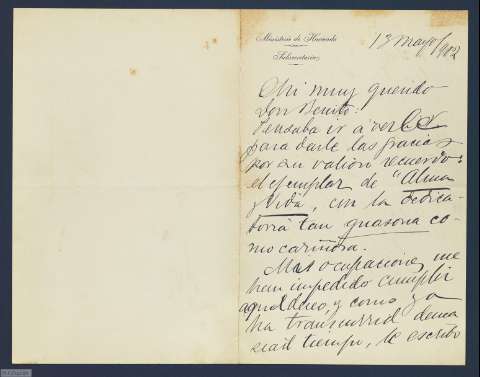 Ministerio de Hacienda
Subsecretaría
13 Mayo/902
Mi muy querido
Don Benito:
Pensaba ir a verle
para darle las gracias
por su valioso recuerdo:
el ejemplar de "Alma
y Vida", con la dedica-
toria tan guasona co-
mo cariñosa.
Mis ocupaciones me
han impedido cumplir
aquel deseo, y como ya
ha transcurrido dema
siado tiempo, le escribo